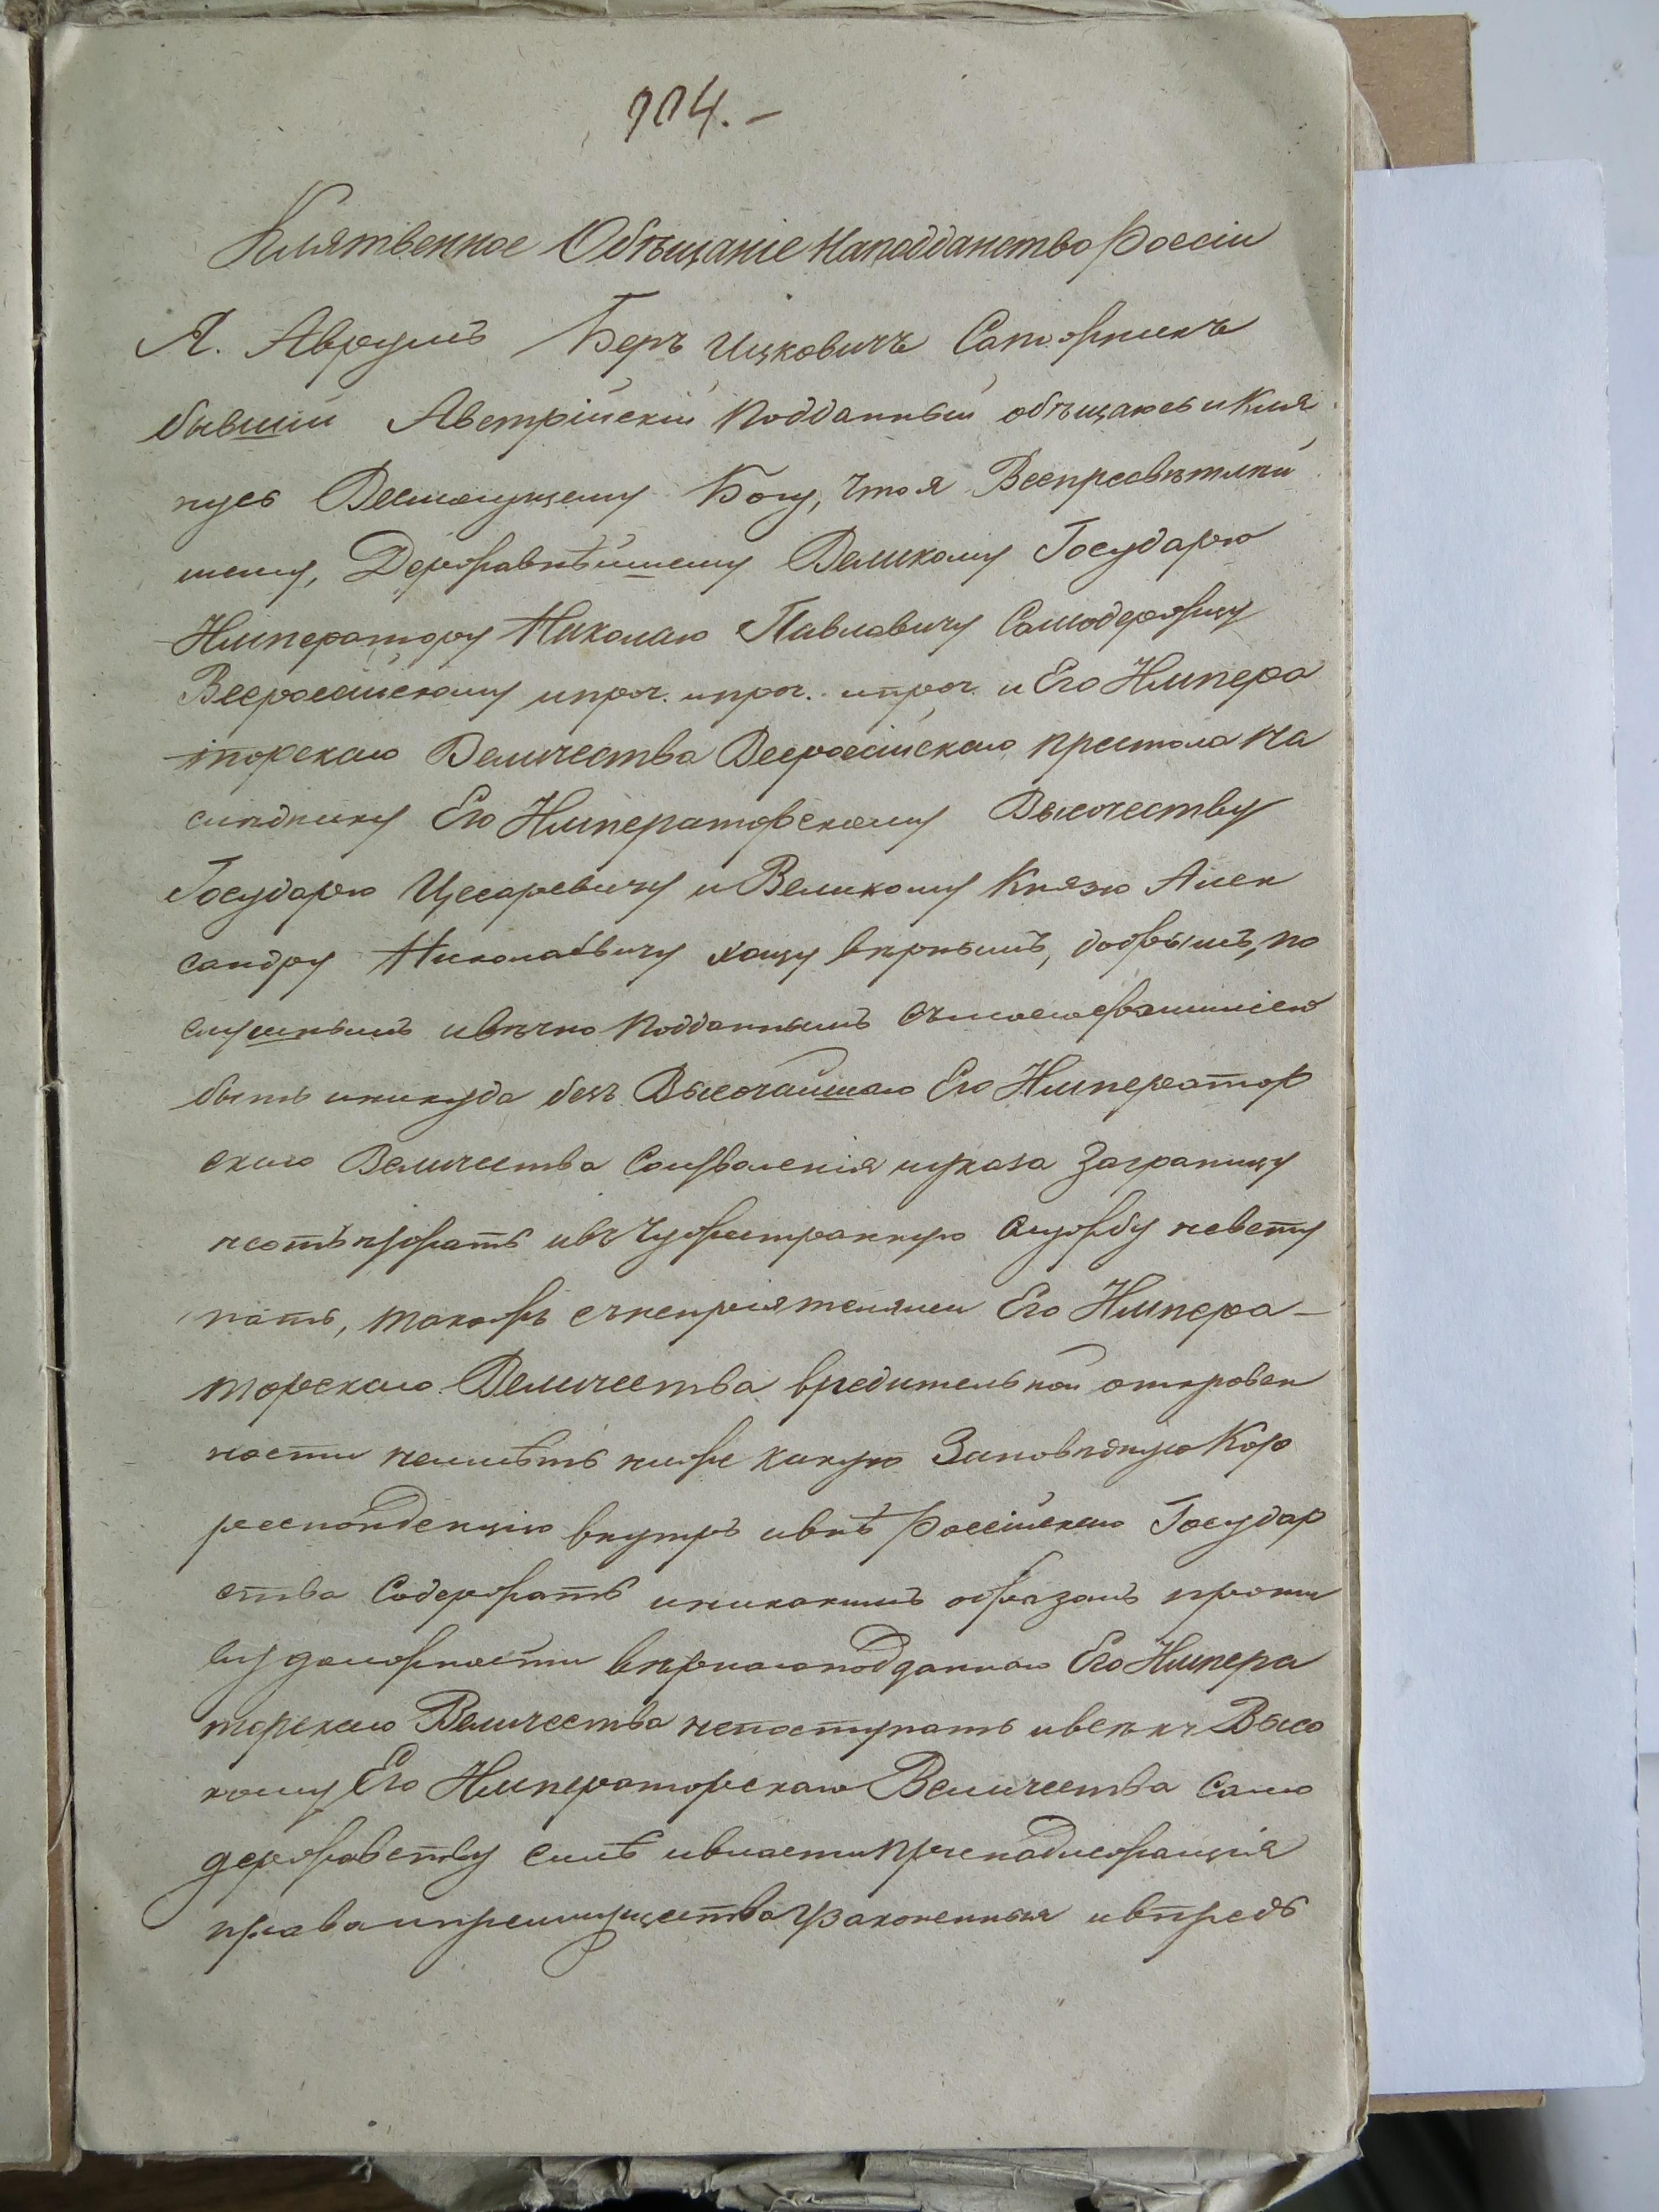 704.—
Клятвенное Обѣщаніе наподданство Россіи
Я. Аврумъ Беръ Ицковичъ
бывшій Австрійскій Подданный обѣщаюсь и Кля
нусь Всемогущему Богу, что я Всепресвѣтлѣй
шему, Державнѣйшему Великому Государю
Императору Николаю Павловичу Самодержцу
Всероссійскому ипроч. ипроч. ипроч. и Его Импера
торскаго Величества Всероссійскаго престола На
слѣднику Его Императорскому Высочеству
Государю Цесаревичу и Великому Князю Алек
сандру Николаевичу хощу вѣрнымъ, добрымъ, по
слушнымъ ивѣчно Подданнымъ Съмоею фамиліею
быть иникуда безъ Высочайшаго Его Император
скаго Величества Соизволенія иуказа Заграницу
неотъѣзжать ивъ Чужестранную Службу невсту
пать, такожъ снепріятелями Его Импера—
торскаго Величества вредительной откровен
ности неимѣть ниже какую Заповѣдную Кор
респонденцію внутрь ивнѣ Россійскаго Государ
ства Содержать иникакимъ образомъ проти
ву должности вѣрнаго подданнаго Его Импера
торскаго Величества непоступать ивсѣ къ Высо
кому Его Императорскаго Величества Само
державству силѣ ивласти принадлежащія
права ипреимущества Узаконенныя ивпредь